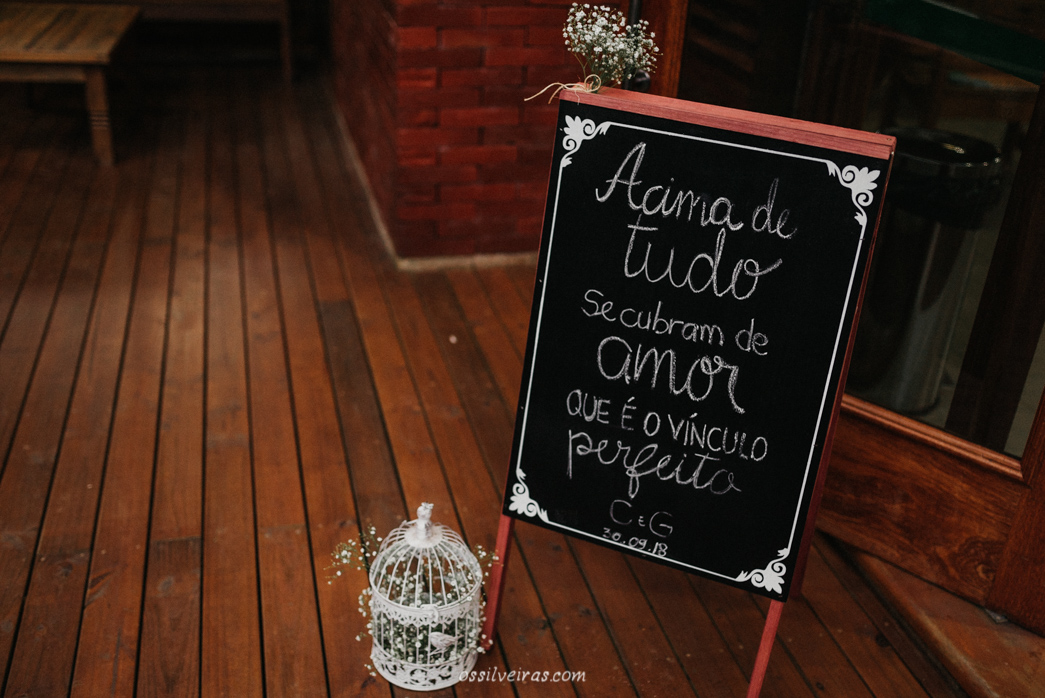 Acima de
tudo
Se cubram de
amor
QUE É O VÍNCULO
perfeito
C E G
30.09.18
ossilveiras.com